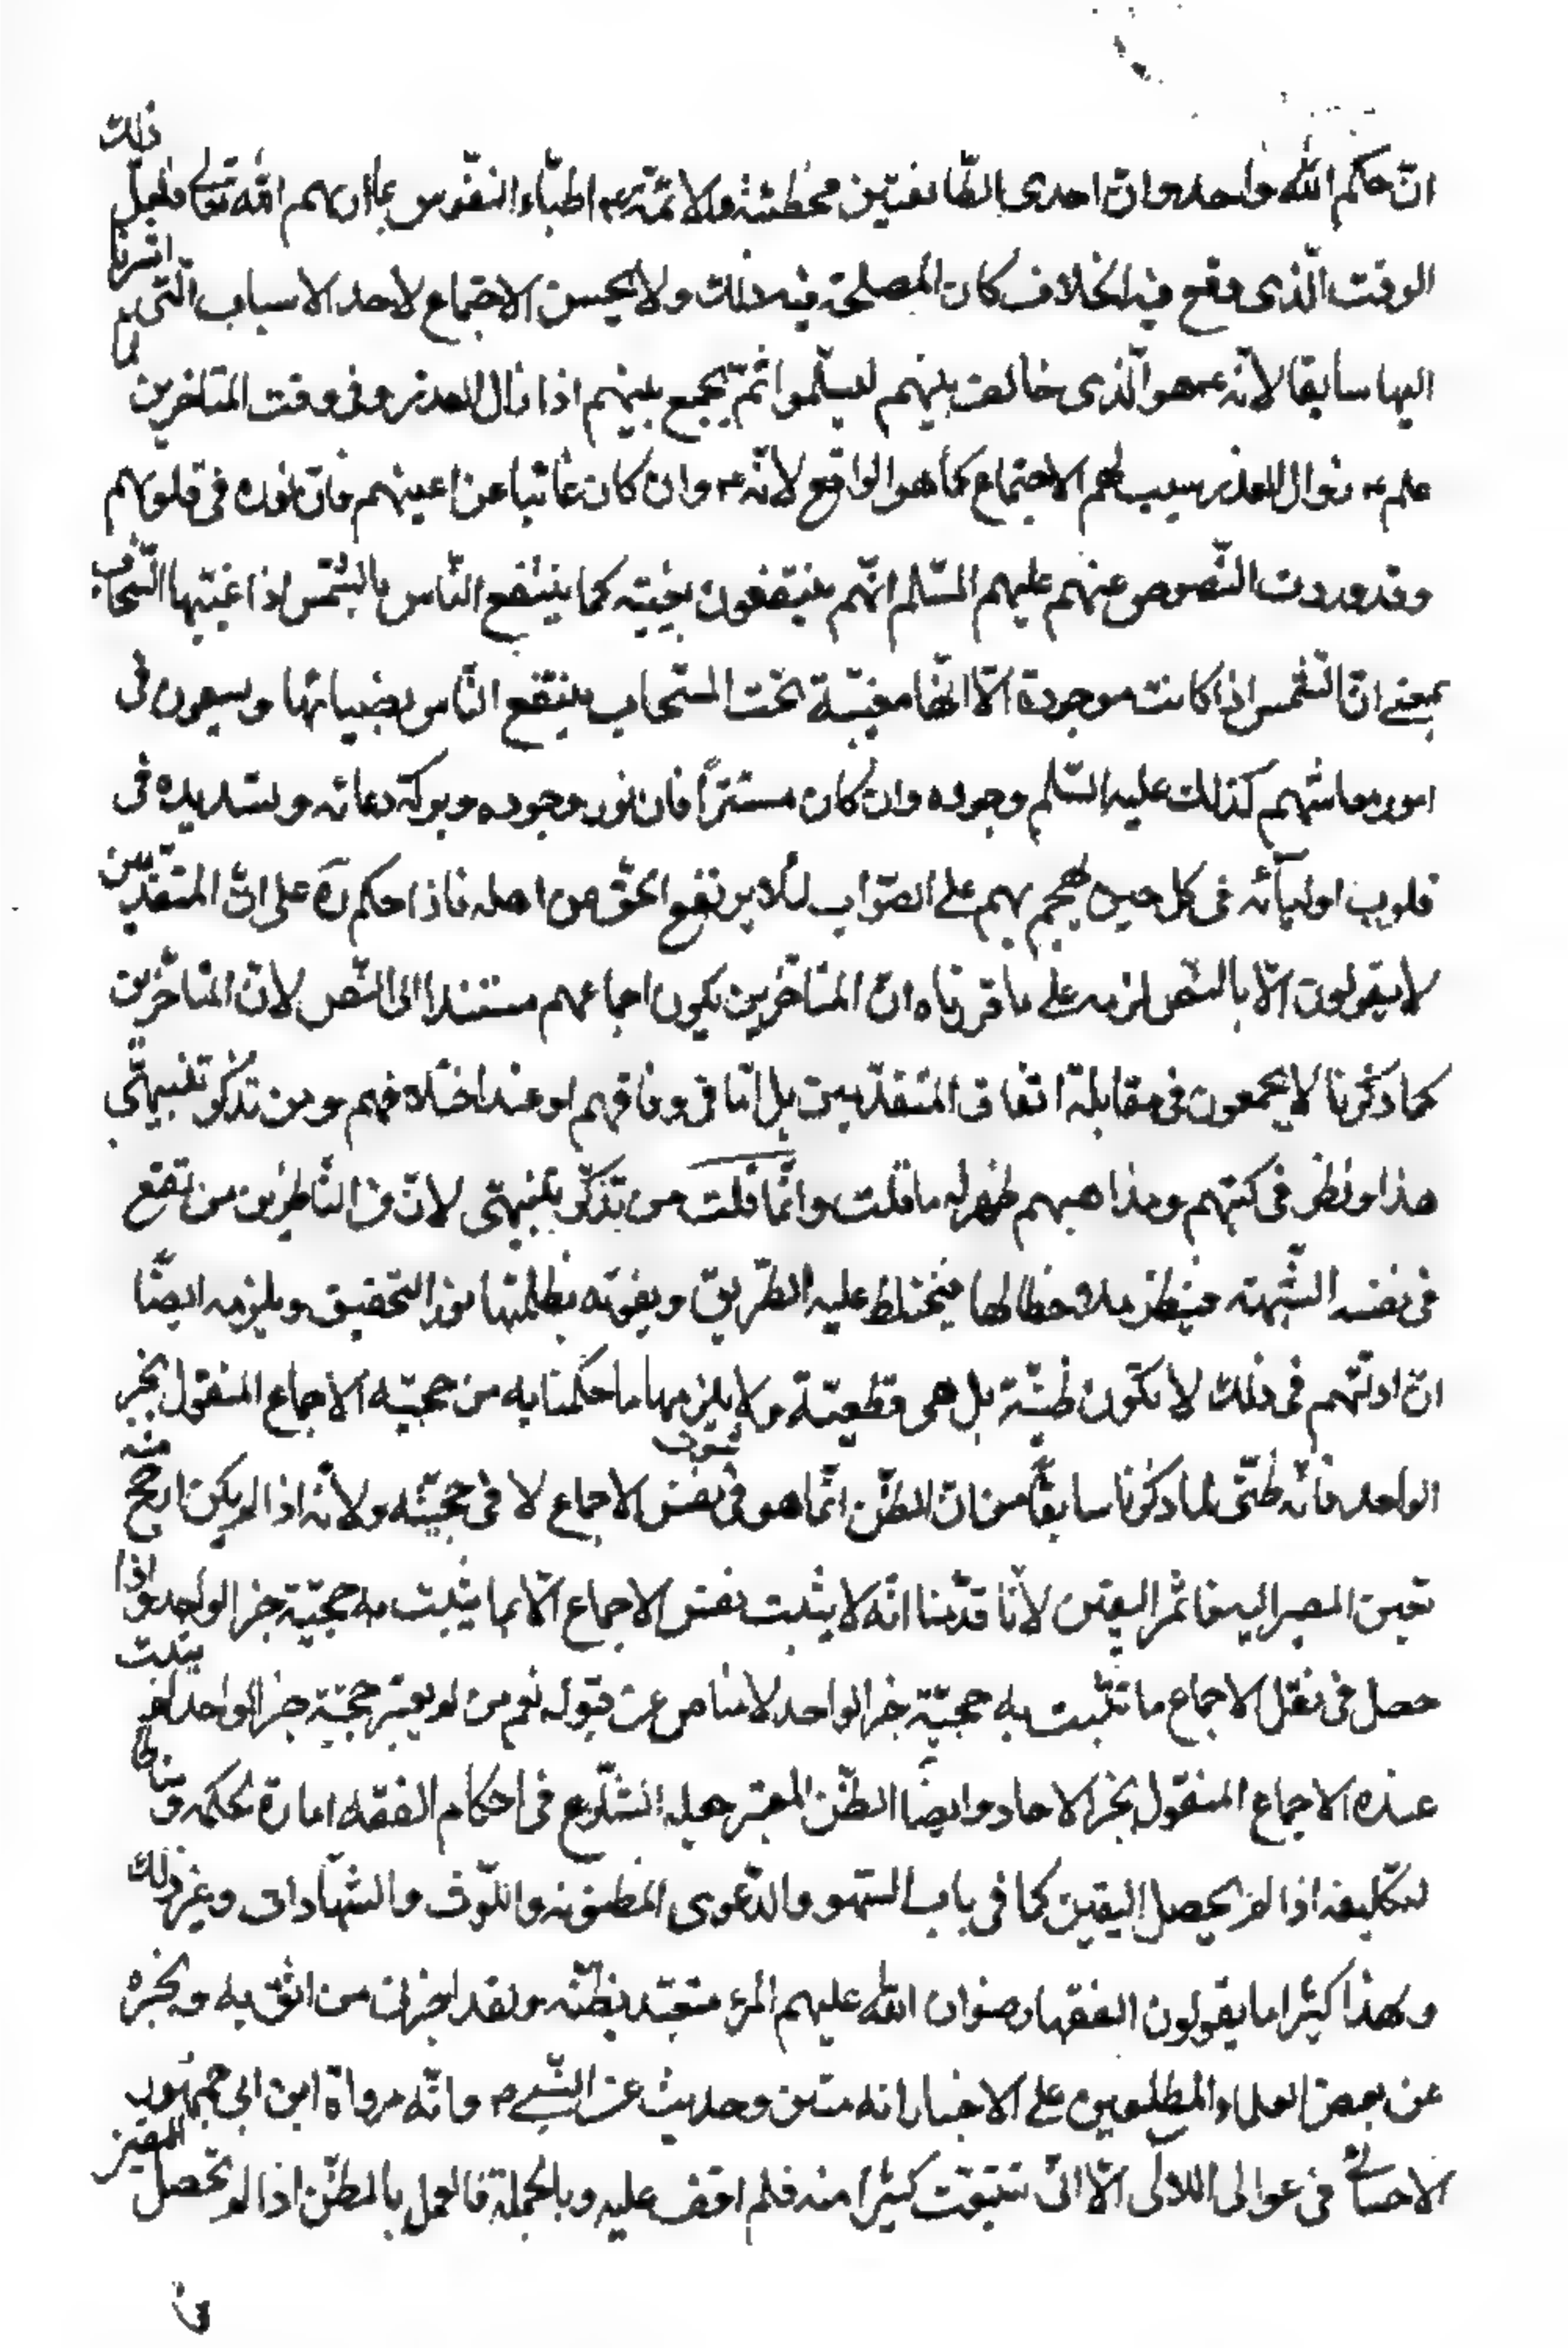 انّ حكم الله واحد وانّ احدى الطّائفتين مخطئة والائمّة ع اطبّاء النفوس بما اريهم الله تعالى فلعلّ ذلك
الوقت الّذى وقع فيه الخلاف كان المصلحة فيه ذلك ولا يحسن الاجتماع لاحد الاسباب الّتى اشرنا
اليها سابقا لانّه ع هو الّذى خالف بينهم ليسلموا ثمّ يجمع بينهم اذا زال العذر وفى وقت المتاخرين لما
علم ع زوال العذر سبب لهم الاجتماع كما هو الواقع لانّه ع وان كان غائبا عن اعينهم فانّ نوره فى قلوبهم
وقد وردت النّصوص عنهم عليهم السّلم انّهم ينتفعون بغيبته كما ينتفع النّاس بالشّمس اذا غيّبها السّحاب
بمعنى انّ الشّمس اذا كانت موجودة الّا انّها مغيّبة تحت السّحاب ينتفع النّاس بضيائها ويسعون فى
امور معاشهم كذلك عليه السّلم وجوده وان كان مستتراً فان نور وجوده وبركة دعائه وتسديده فى
قلوب اوليآئه فى كل حين يهجم بهم على الصّواب لئلا يرتفع الحقّ من اهله فاذا حكم ره على انّ المتقدّمين
لا يقولون الّا بالنّص لزمه على ما قررناه انّ المتاخّرين يكون اجماعهم مستندا الى النّص لانّ المتاخّرين
كما ذكرنا لا يجمعون فى مقابلة اتفاق المتقدّمين بل امّا فى وفاقهم او عند اختلافهم ومن تذكّر تنبيهى
هذا ونظر فى كتبهم ومذاهبهم ظهر له ما قلت وانّما قلت من تذكّر تنبيهى لانّ من النّاظرين من تقع
فى نفسه الشّبهة فينظر ملاحظا لها فيختلط عليه الطّريق ويفوته بظلمتها نور التّحقيق ويلزمه ايضًا
انّ ادلّتهم فى ذلك لا تكون ظنيّة بل هى قطعيّة ولا يلزمها ما حكمنا به من حجيّة الاجماع المنقول بخبر
الواحد فانّه ظنّى لما ذكرنا سابقًا من انّ الظّن انّما هو فى ثبوت نفس الاجماع لا فى حجيّته ولانّه اذا لم يكن ارجح منه
تعين المصير اليه فاثمر اليقين لانّا قدّمنا انّه لا يثبت نفس الاجماع الّا بما يثبت به حجيّة خبر الواحد واذا
حصل فى نقل الاجماع ما تثبت به حجيّة خبر الواحد لا مناص عن قبوله نعم من لم يعتبر حجيّة خبر الواحد لم يثبت
عنده الاجماع المنقول بخبر الاحاد وايضًا الظّن المعتبر جعله الشّارع فى احكام الفقه امارة لحكمه ومناطا
لتكليفه اذا لم يحصل اليقين كما فى باب السّهو والدّعوى المظنونه واللّوث والشّهادات وغير ذلك
ولهذا كثيرا ما يقولون الفقهاء رضوان الله عليهم المرء متعبّد بظنّه ولقد اخبرنى من اثق به وبخبره
عن بعض العلماء المطلعين على الاخبار انه متن وحديث عن النّبى ص وانّه رواة ابن ابى جمهور
الاحسائى فى عوالى اللئالى الّا انّى تتبعت كثيرا منه فلم اقف عليه وبالجملة فالعمل بالظّن اذا لم تحصل اليقين